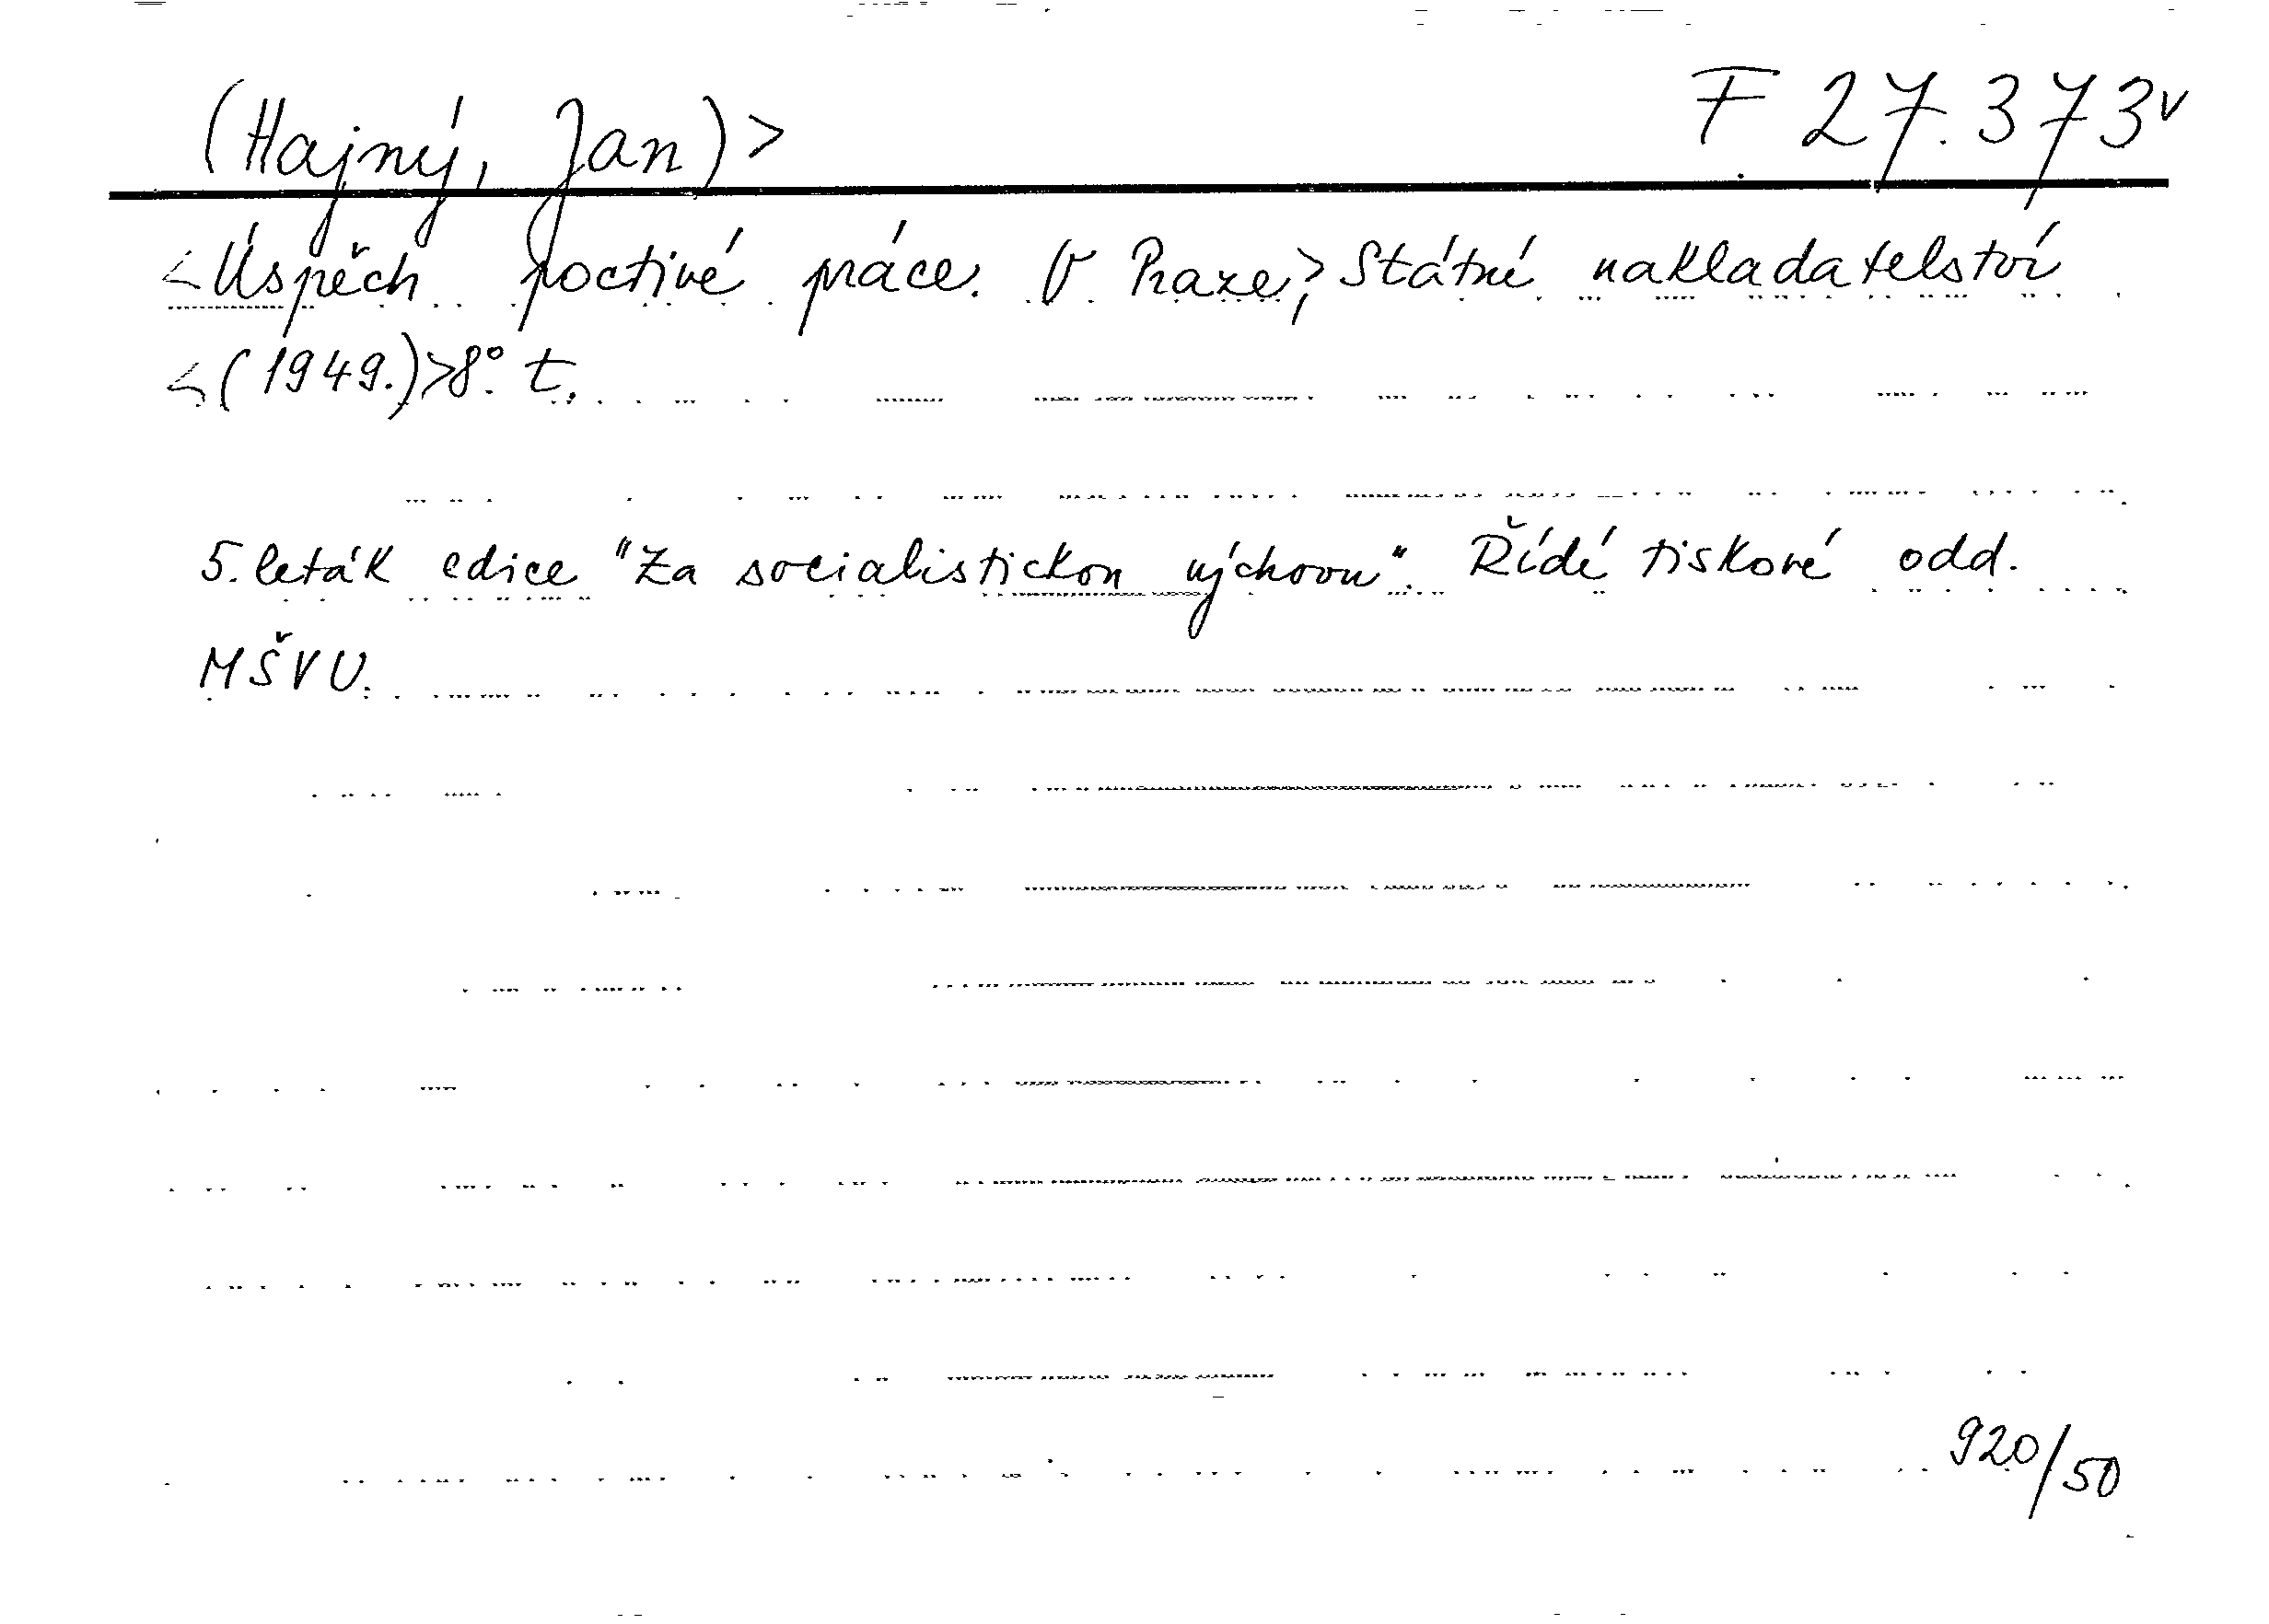 (Hajný, Jan)> F 27.373v
<Úspěch poctivé práce. V Praze,> Státné nakladatelství
<(1949.)>8°. t.
5. leták edice "Za socialistickou výchovu". Řídé tiskové odd.
MŠVU.
920/50